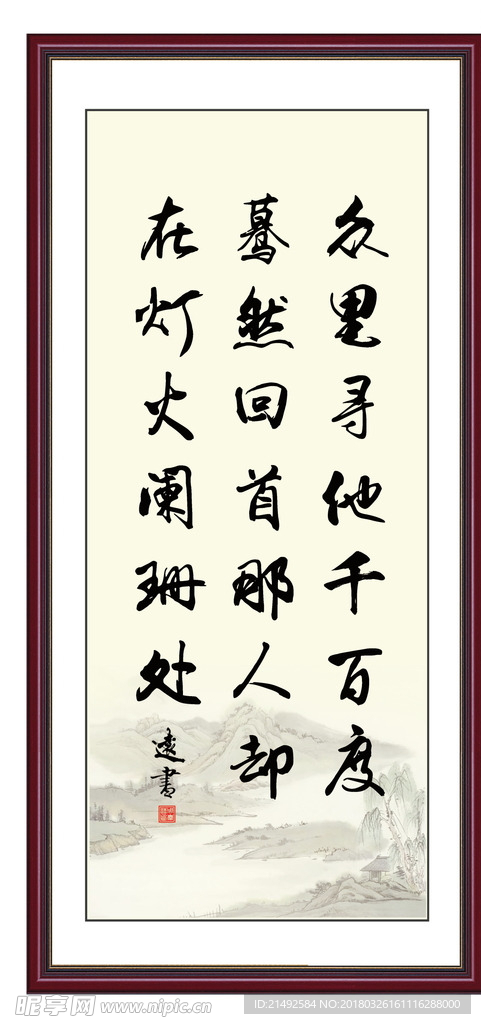 众里寻他千百度
蓦然回首那人却
在灯火阑珊处
遠書
昵享网 www.nipic.cn
ID:21492584 NO:20180326161116288000